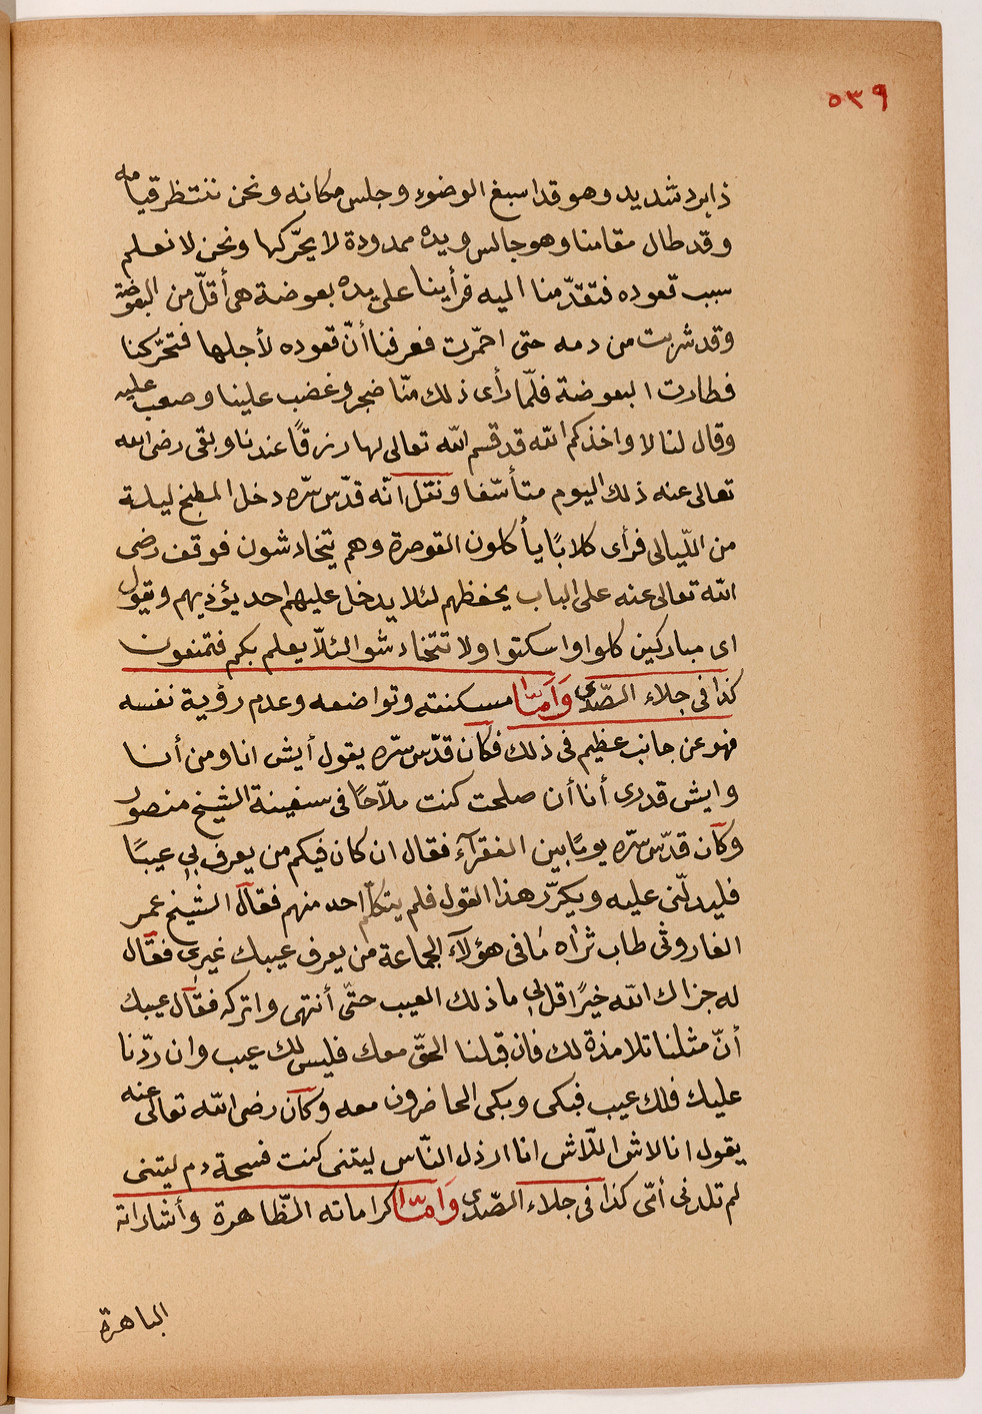 ٥٣٩
ذا برد شديد وهو قد اسبغ الوضوء وجلس مكانه ونحن ننتظر قيامه
وقد طال مقامنا وهو جالس ويده ممدودة لا يحرّكها ونحن لا نعلم
سبب قعوده فتقدّمنا اليه فرأينا على يده بعوضة هى أقلّ من البعوضة
وقد شربت من دمه حتى احمّرت فعرفنا أنّ قعوده لأجلها فتحرّكنا
فطارت البعوضة فلمّا رأى ذلك منّا ضجر وغضب علينا وصعب عليه
وقال لنا لا واخذكم الله قد قسم الله تعالى لها رزقًا عندنا وبقى رضى الله
تعالى عنه ذلك اليوم متأسّفا ونقل انّه قدّس سرّه دخل المطبخ ليلة
من اللّيالى فرأى كلابًا يأكلون القوصرة وهم يتخادشون فوقف رضى
الله تعالى عنه على الباب يحفظهم لئلا يدخل عليهم احد يؤذيهم ويقول
اى مباركين كلوا واسكتوا ولا تتخادشوا لئلّا يعلم بكم فتمنعون
كذا فى جلاء الصّدى وَامّا مسكنته وتواضعه وعدم رؤية نفسه
فهو عن جانب عظيم فى ذلك فكان قدّس سرّه يقول أيش انا ومن أنا
وايش قدرى أنا أن صلحت كنت ملّاحًا فى سفينة الشيخ منصور
وكان قدّس سرّه يومًا بين الفقرآء فقال ان كان فيكم من يعرف بي عيبًا
فليدلّنى عليه ويكرّر هذا القول فلم يتكلّم احد منهم فقال له الشيخ عمر
الفاروثى طاب ثراه ما فى هؤلآء الجماعة من يعرف عيبك غيرى فقال
له جزاك الله خيرًا قل لي ما ذلك العيب حتّى أنتهى واتركه فقال عيبك
أنّ مثلنا تلامذة لك فان قبلنا الحقّ معك فليس لك عيب وان ردّنا
عليك فلك عيب فبكى وبكى الحاضرون معه وكان رضى الله تعالى عنه
يقول انا لاش اللّاش انا ارذل النّاس ليتنى كنت فسحة دم ليتنى
لم تلدنى أمّى كذا فى جلاء الصّدى وَامّا كراماته الظّاهرة وأشاراته
الباهرة